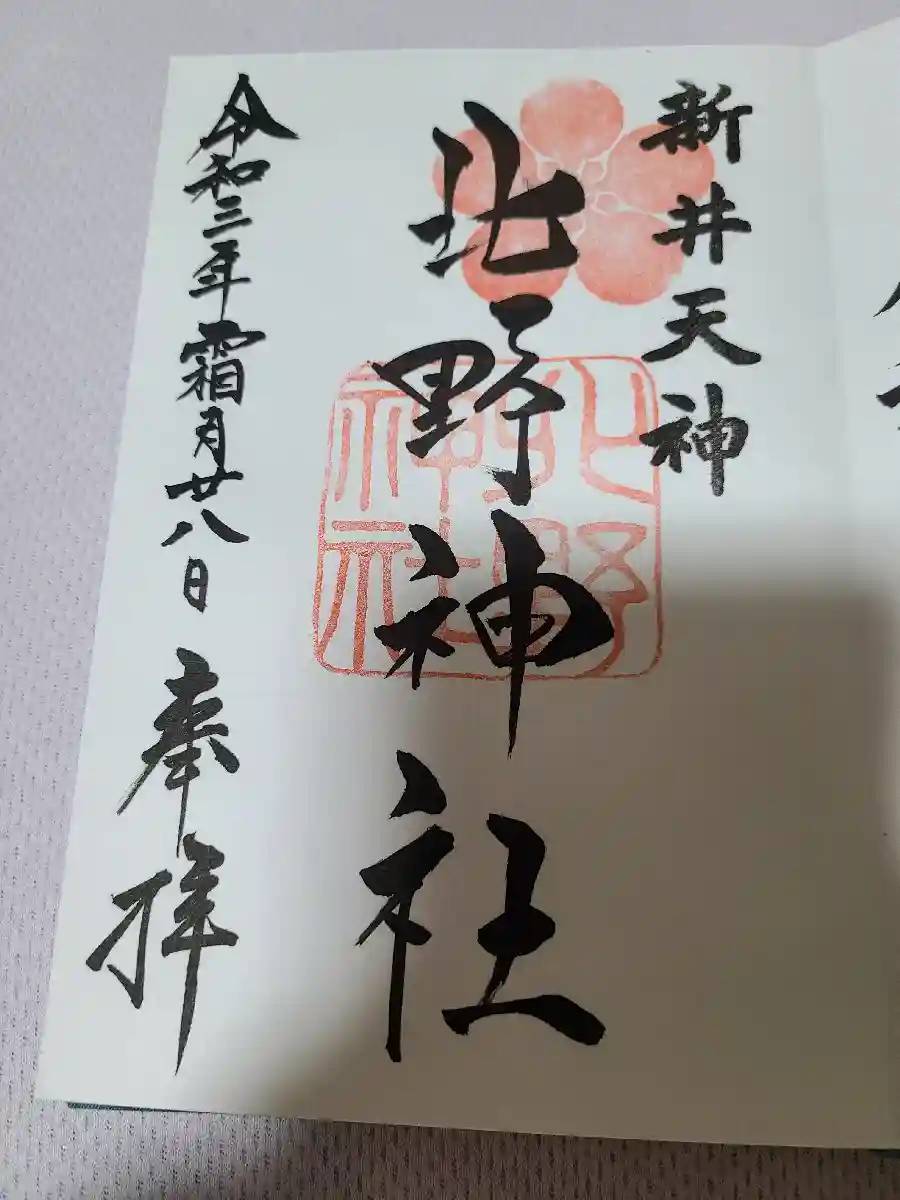 新井天神
北野神社
北野
神社
令和三年霜月廿八日 奉拝